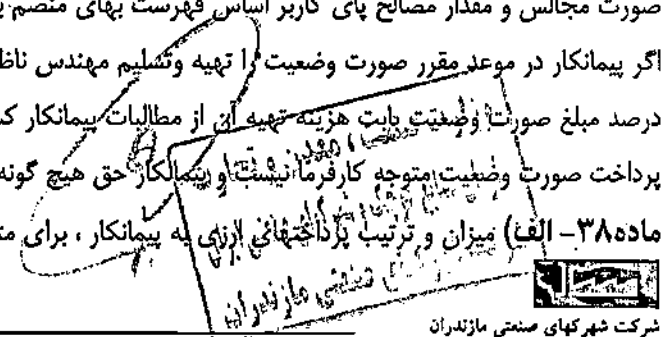 صورت مجالس و مقدار مصالح پای کاربر اساس فهرست بهای منضم
اگر پیمانکار در موعد مقرر صورت وضعیت را تهیه وتسلیم مهندس ناظ
درصد مبلغ صورت وضعیت بابت هزینه تهیه آن از مطالبات پیمانکار ک
پرداخت صورت وضعیت متوجه کارفرما نیست و پیمانکار حق هیچ گونه
ماده۳۸- الف) میزان و ترتیب پرداختهای ارزی به پیمانکار ، برای مت
صنعتی مازندران
شرکت شهرکهای صنعتی مازندران